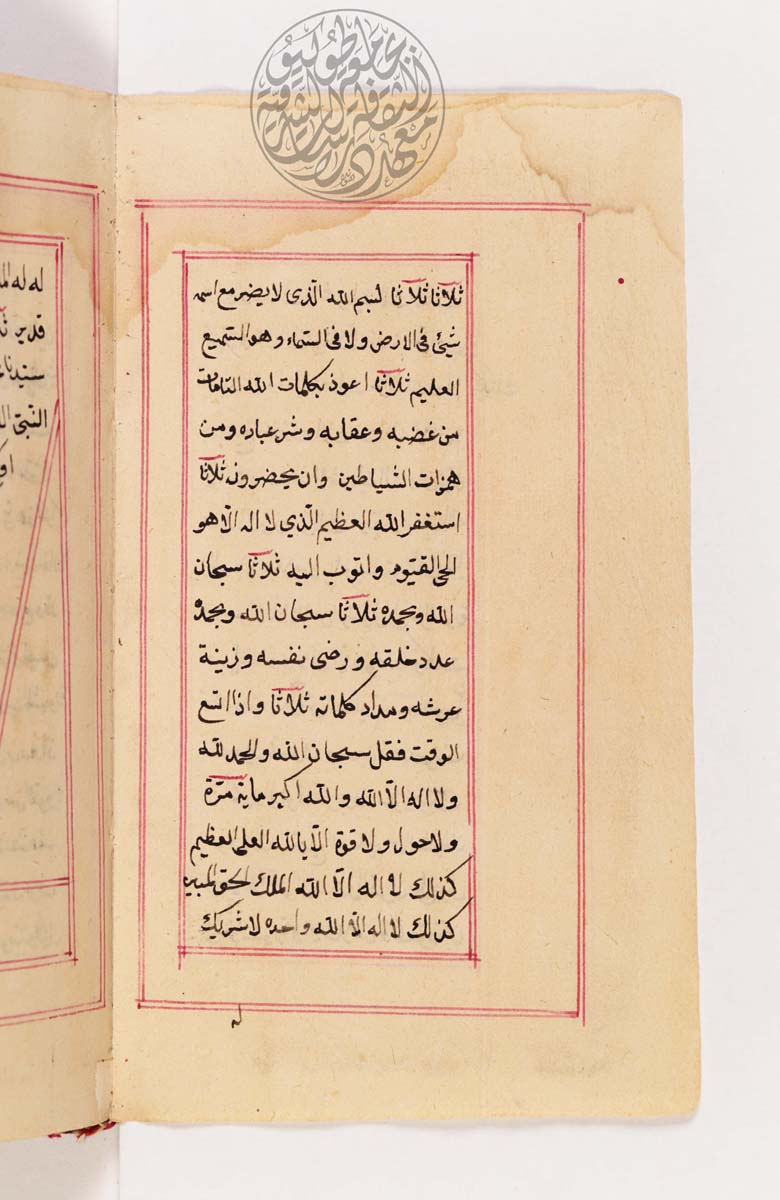 ثلاثا ثلاثا بسم الله الذى لا يضر مع اسمه
شيئ فى الارض ولا فى السماء وهو السميع
العليم ثلاثا اعوذ بكلمات الله التامات
من غضبه وعقابه وشر عباده ومن
همزات الشياطين وان يحضرون ثلاثا
استغفر الله العظيم الّذي لا اله الّا هو
الحى القيّوم واتوب اليه ثلاثا سبحان
الله وبحمده ثلاثا سبحان الله وبحمده
عدد خلقه ورضى نفسه وزينة
عرشه ومداد كلماته ثلاثا واذا اتسع
الوقت فقل سبحان الله والحمد لله
ولا اله الّا الله والله اكبر ماية مرّة
ولا حول ولا قوة الّا بالله العلى العظيم
كذلك لا اله الّا الله الملك الحق المبين
كذلك لا اله الّا الله واحده لا شريك
له
له له
قدير
سيدنا
النبى
معهد الدراسات الثقافية الشرقية
جامعة طوكيو